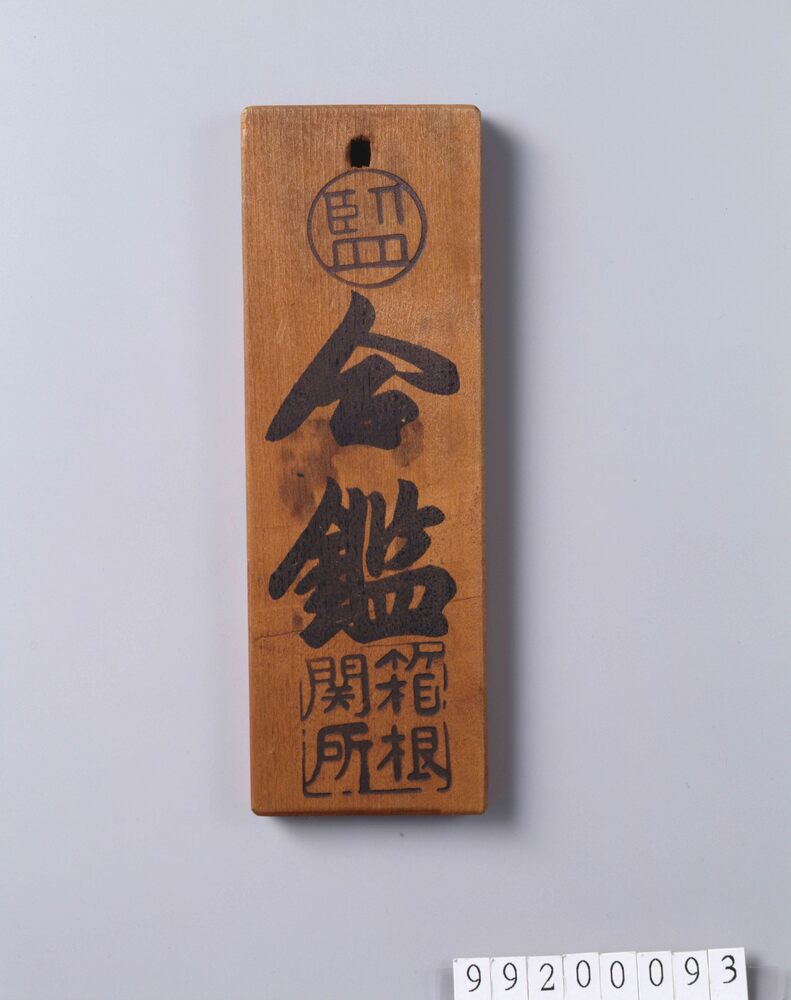 監
合
鑑
箱根
関所
99200093